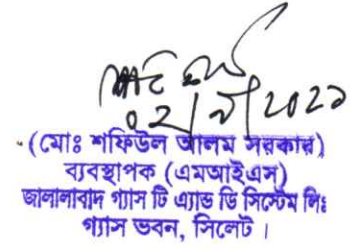 ০২/০৭/২০২১
(মোঃ শফিউল আলম সরকার)
ব্যবস্থাপক (এমআইএস)
জালালাবাদ গ্যাস টি এ্যান্ড ডি সিস্টেম লিঃ
গ্যাস ভবন, সিলেট।